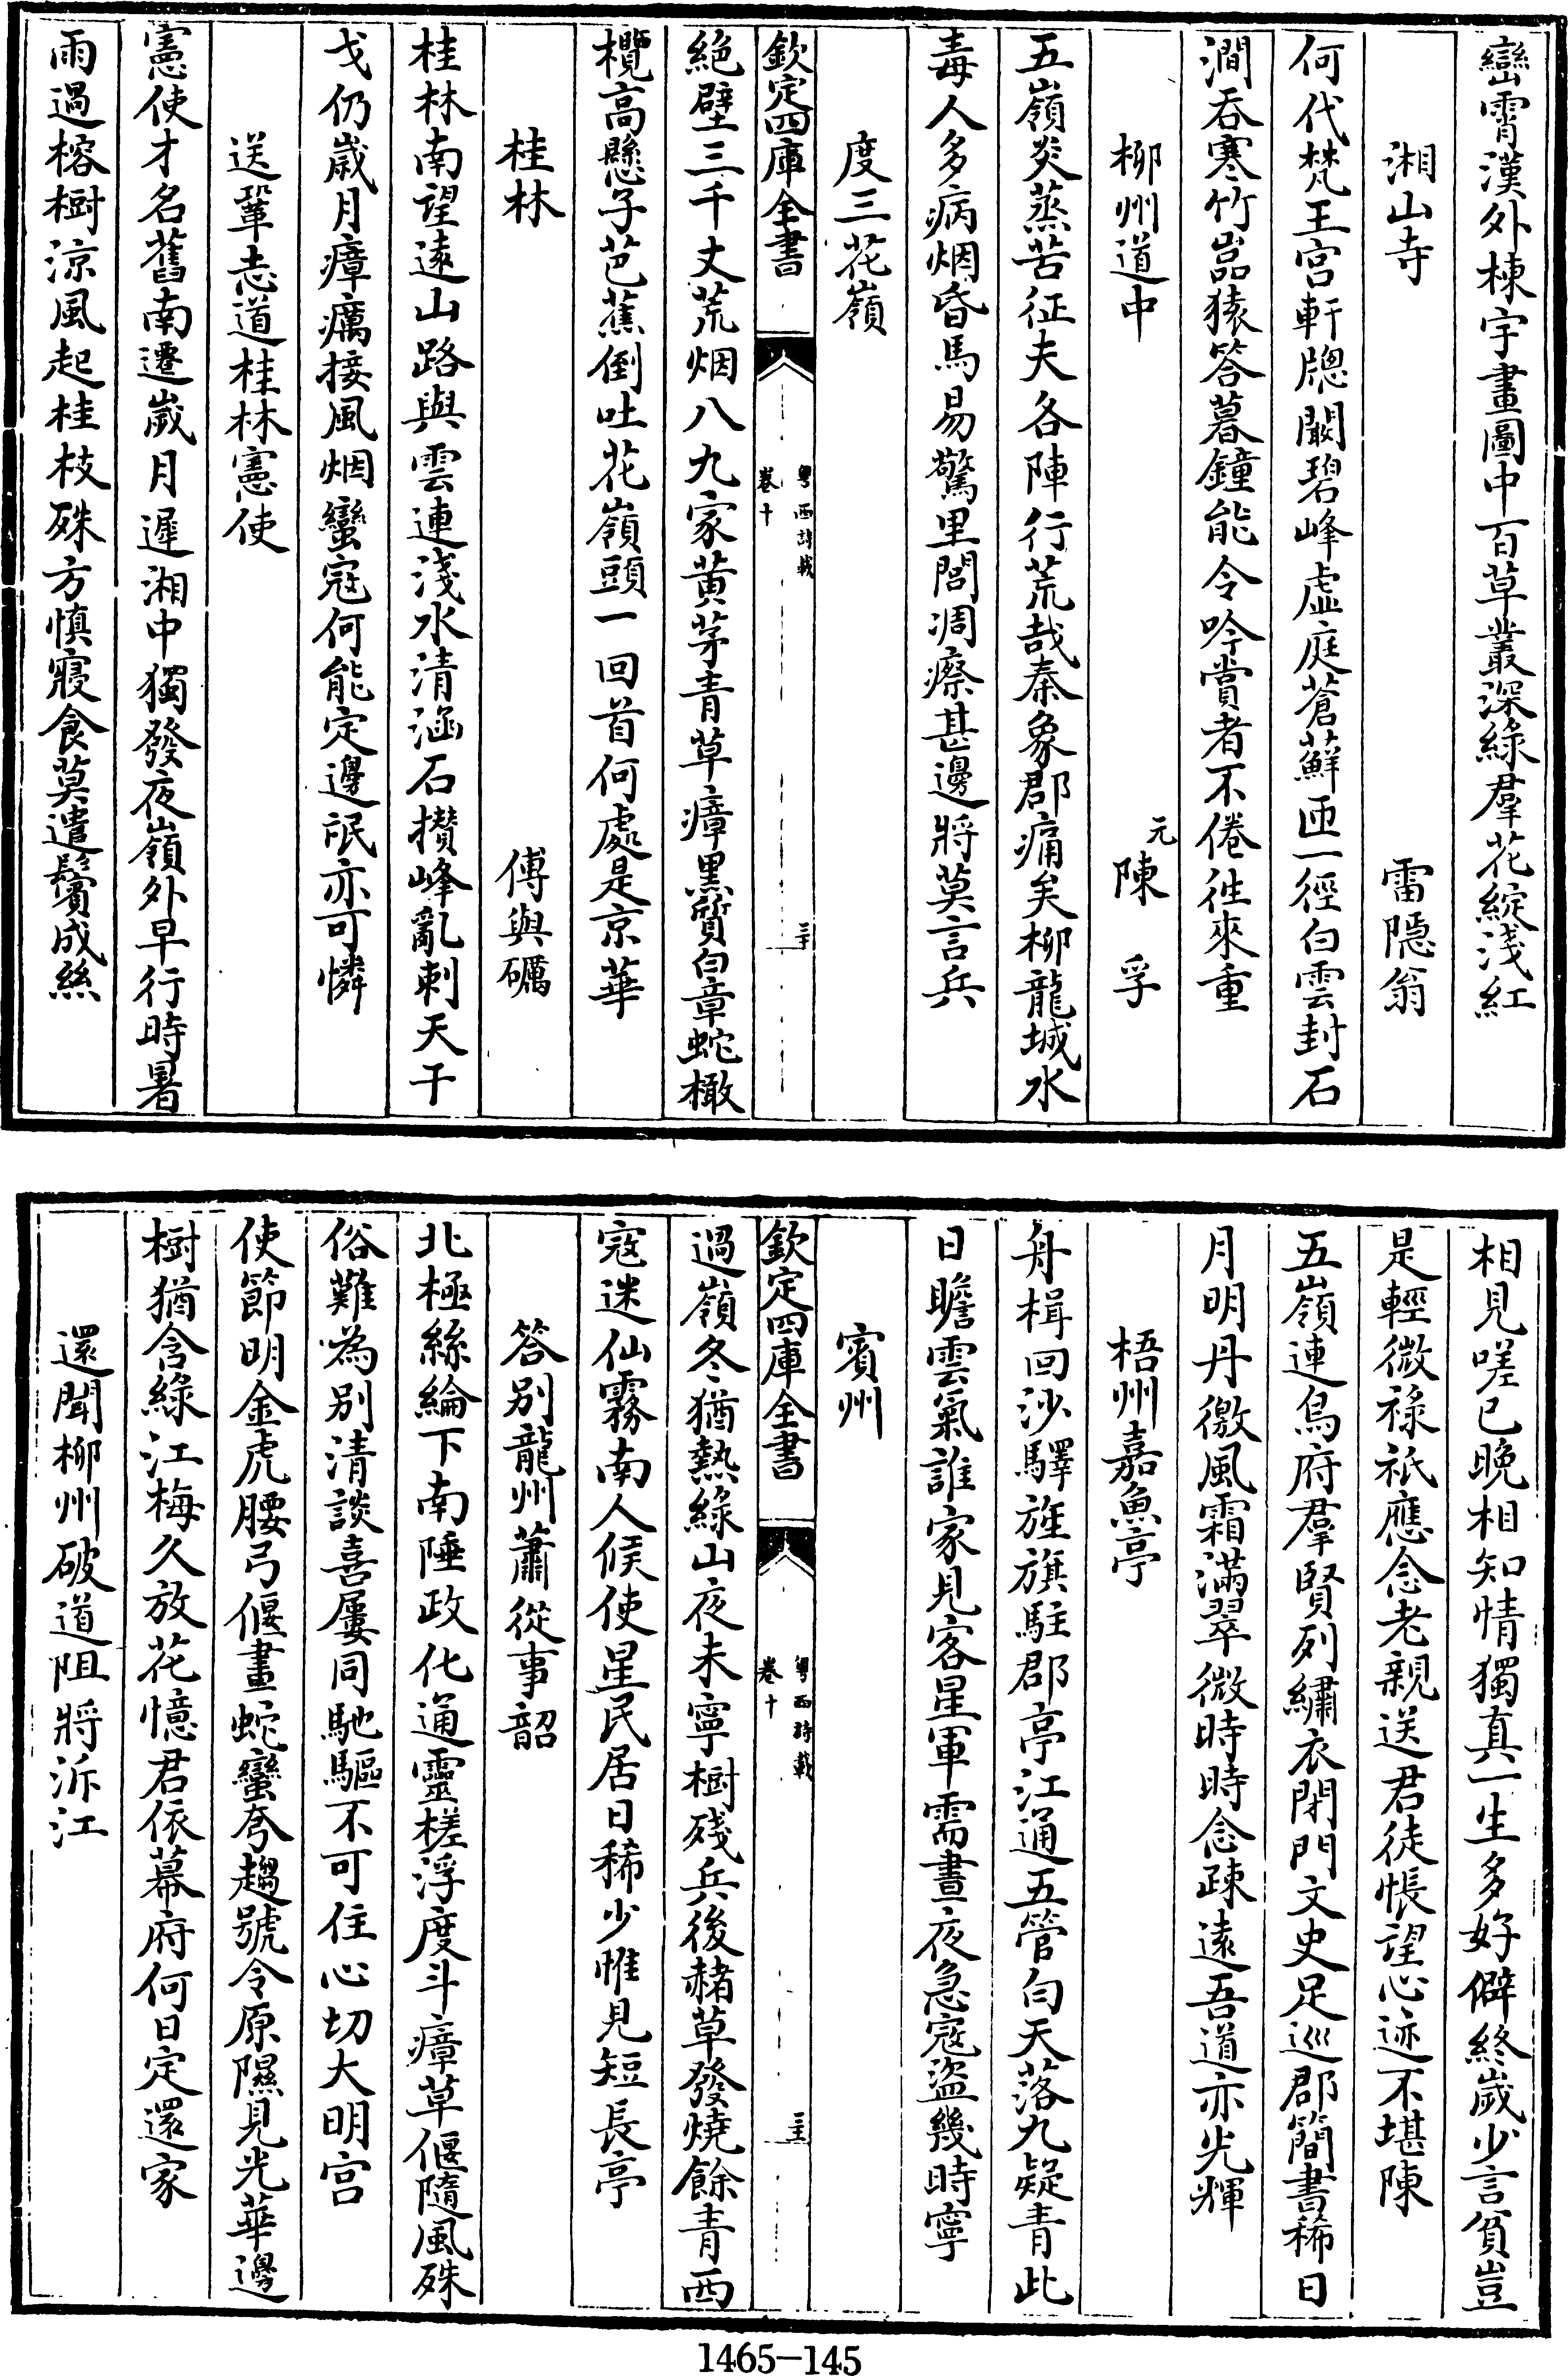 巒霄漢外棟宇畫圖中百草叢深綠羣花綻淺紅
湘山寺　雷隱翁
何代梵王宫軒牕闞碧峰虛庭蒼蘚匝一徑白雲封石
澗吞寒竹嵓猿答暮鐘能令吟賞者不倦往來重
柳州道中　元陳孚
五嶺炎蒸苦征夫各陣行荒哉秦象郡痛矣柳龍城水
毒人多病烟昏馬易驚里閭凋瘵甚邊將莫言兵
度三花嶺
欽定四庫全書　粵西詩載　卷十　三十
絶壁三千丈荒烟八九家黄茅青草瘴黑質白章蛇橄
欖高懸子芭蕉倒吐花嶺頭一回首何處是京華
桂林　傅與礪
桂林南望遠山路與雲連淺水清涵石攅峰亂刺天干
戈仍歲月瘴癘接風烟蠻冦何能定邊氓亦可憐
送鞏志道桂林憲使
憲使才名舊南遷歲月遲湘中獨發夜嶺外早行時暑
雨過榕樹涼風起桂枝殊方慎寢食莫遣鬢成絲
相見嗟已晚相知情獨真一生多好僻終歲少言貧豈
是輕微禄祇應念老親送君徒悵望心迹不堪陳
五嶺連烏府羣賢列繡衣閉門文史足巡郡簡書稀日
月明丹徼風霜滿翠微時時念疎遠吾道亦光輝
梧州嘉魚亭
舟楫回沙驛旌旗駐郡亭江通五管白天落九疑青此
日瞻雲氣誰家見客星軍需晝夜急寇盜幾時寧
賓州
欽定四庫全書　粵西詩載　卷十　三十一
過嶺冬猶熱綠山夜未寧樹殘兵後赭草發燒餘青西
寇迷仙霧南人候使星民居日稀少惟見短長亭
答别龍州蕭從事韶
北極絲綸下南陲政化通靈槎浮度斗瘴草偃隨風殊
俗難為别清談喜屢同馳驅不可住心切大明宫
使節明金虎腰弓偃畫蛇蠻夸趨號令原隰見光華邊
樹猶含綠江梅久放花憶君依幕府何日定還家
還聞柳州破道阻將泝江
1465-145